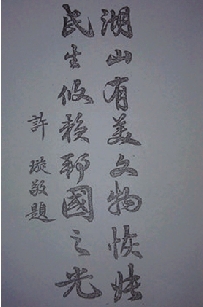 湖山有美文物恢
民生攸賴邦國之光
許璇敬題